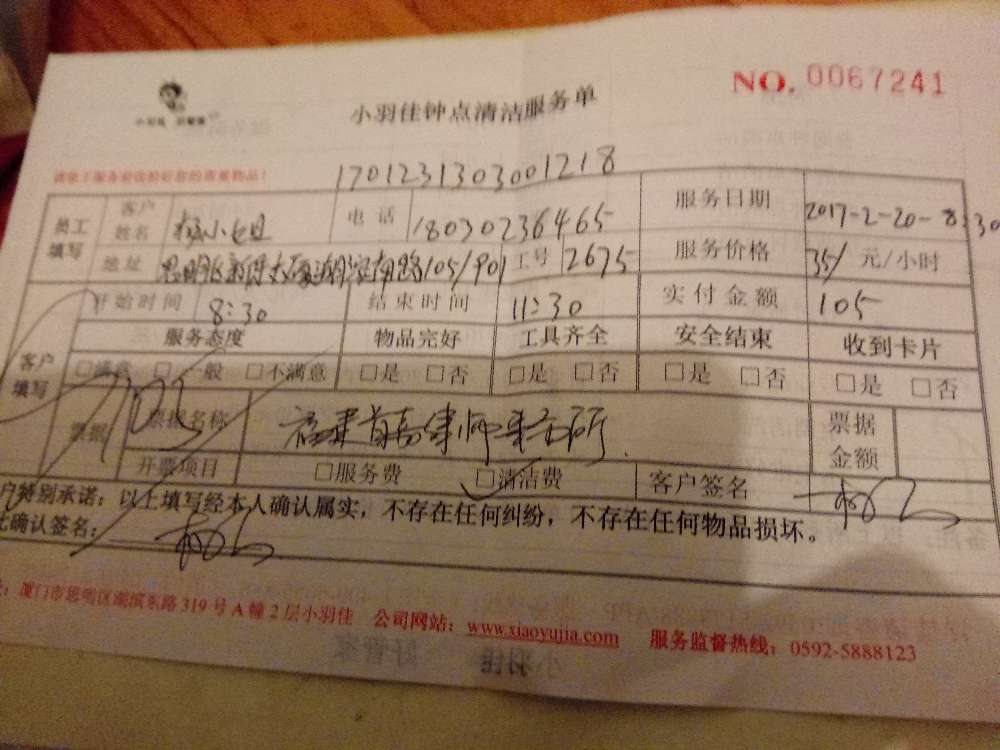 NO. 0067241
小羽佳 好管家
小羽佳钟点清洁服务单
1701231303001218
员工填写 客户姓名 杨小姐 电话 18030236465 服务日期 2017-2-20-8:30
地址 105/901 工号 2675 服务价格 35/ 元/小时
开始时间 8:30 结束时间 11:30 实付金额 105
客户填写 服务态度 物品完好 工具齐全 安全结束 收到卡片
□满意 □一般 □不满意 □是 □否 □是 □否 □是 □否 □是 □否
票据 票据名称 福建首高律师事务所 票据金额
开票项目 □服务费 □清洁费 客户签名
户特别承诺：以上填写经本人确认属实，不存在任何纠纷，不存在任何物品损坏。
确认签名：
：厦门市思明区湖滨东路319号A幢2层小羽佳 公司网站：www.xiaoyujia.com 服务监督热线：0592-5888123